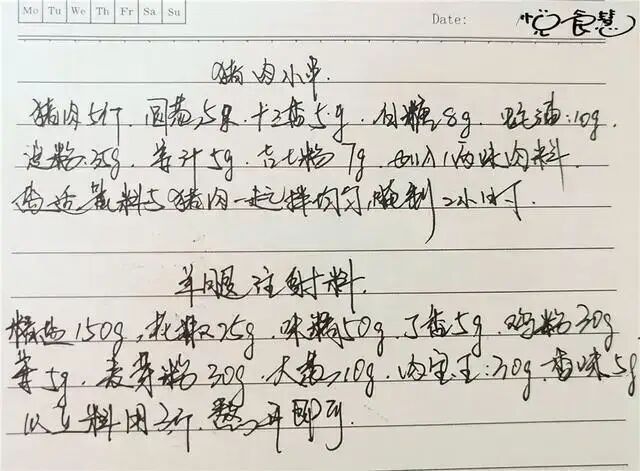 Mo Tu We Th Fr Sa Su
Date: 悦食慧
猪肉小串.
猪肉5斤. 圆葱 5g. 十三香5g. 白糖8g. 蚝油:10g.
淀粉:35g. 姜汁5g. 吉士粉 7g. 加入 料
料与猪肉一起拌均匀,腌制2小时.
羊腿注射料.
精盐150g, 花椒25g. 味精50g. 丁香5g. 鸡粉30g
姜5g. 麦芽粉30g. 大葱10g. 肉宝王:30g. 香味5g
以上料用 斤. 熬 开即可.